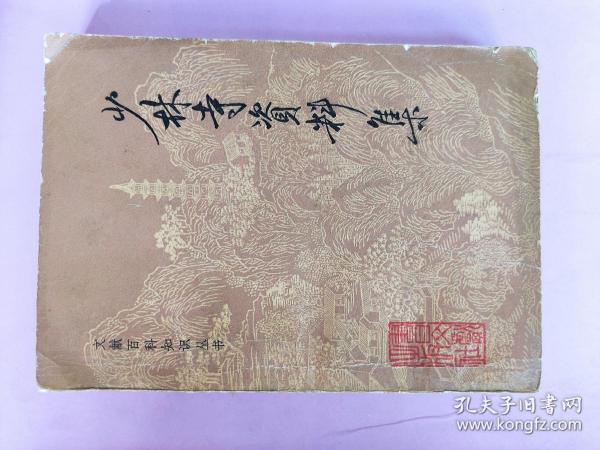 少林寺資料集
文献百科知识丛书
孔夫子旧书网
www.kongfz.com